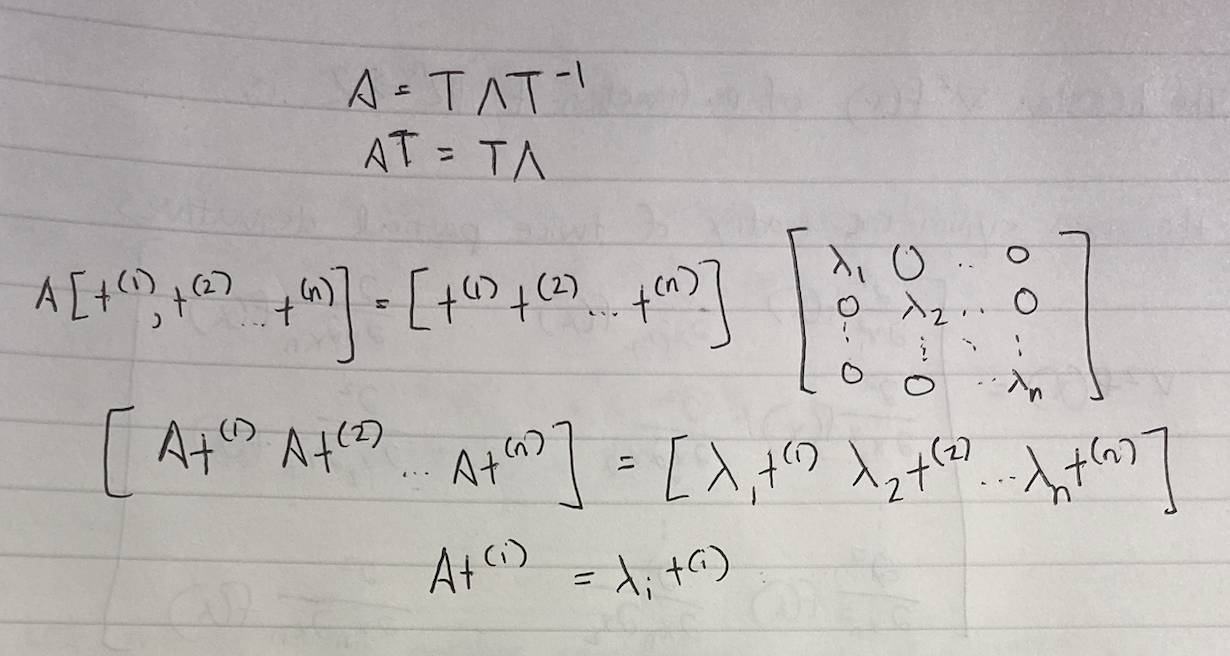 A = TΛT⁻¹
AT = TΛ
A[t⁽¹⁾, t⁽²⁾ ... t⁽ⁿ⁾] = [t⁽¹⁾ t⁽²⁾ ... t⁽ⁿ⁾] [λ₁ 0 .. 0
0 λ₂ .. 0
⋮ ⋮ ⋱ ⋮
0 0 .. λₙ]
[At⁽¹⁾ At⁽²⁾ ... At⁽ⁿ⁾] = [λ₁t⁽¹⁾ λ₂t⁽²⁾ ... λₙt⁽ⁿ⁾]
At⁽ⁱ⁾ = λᵢt⁽ⁱ⁾